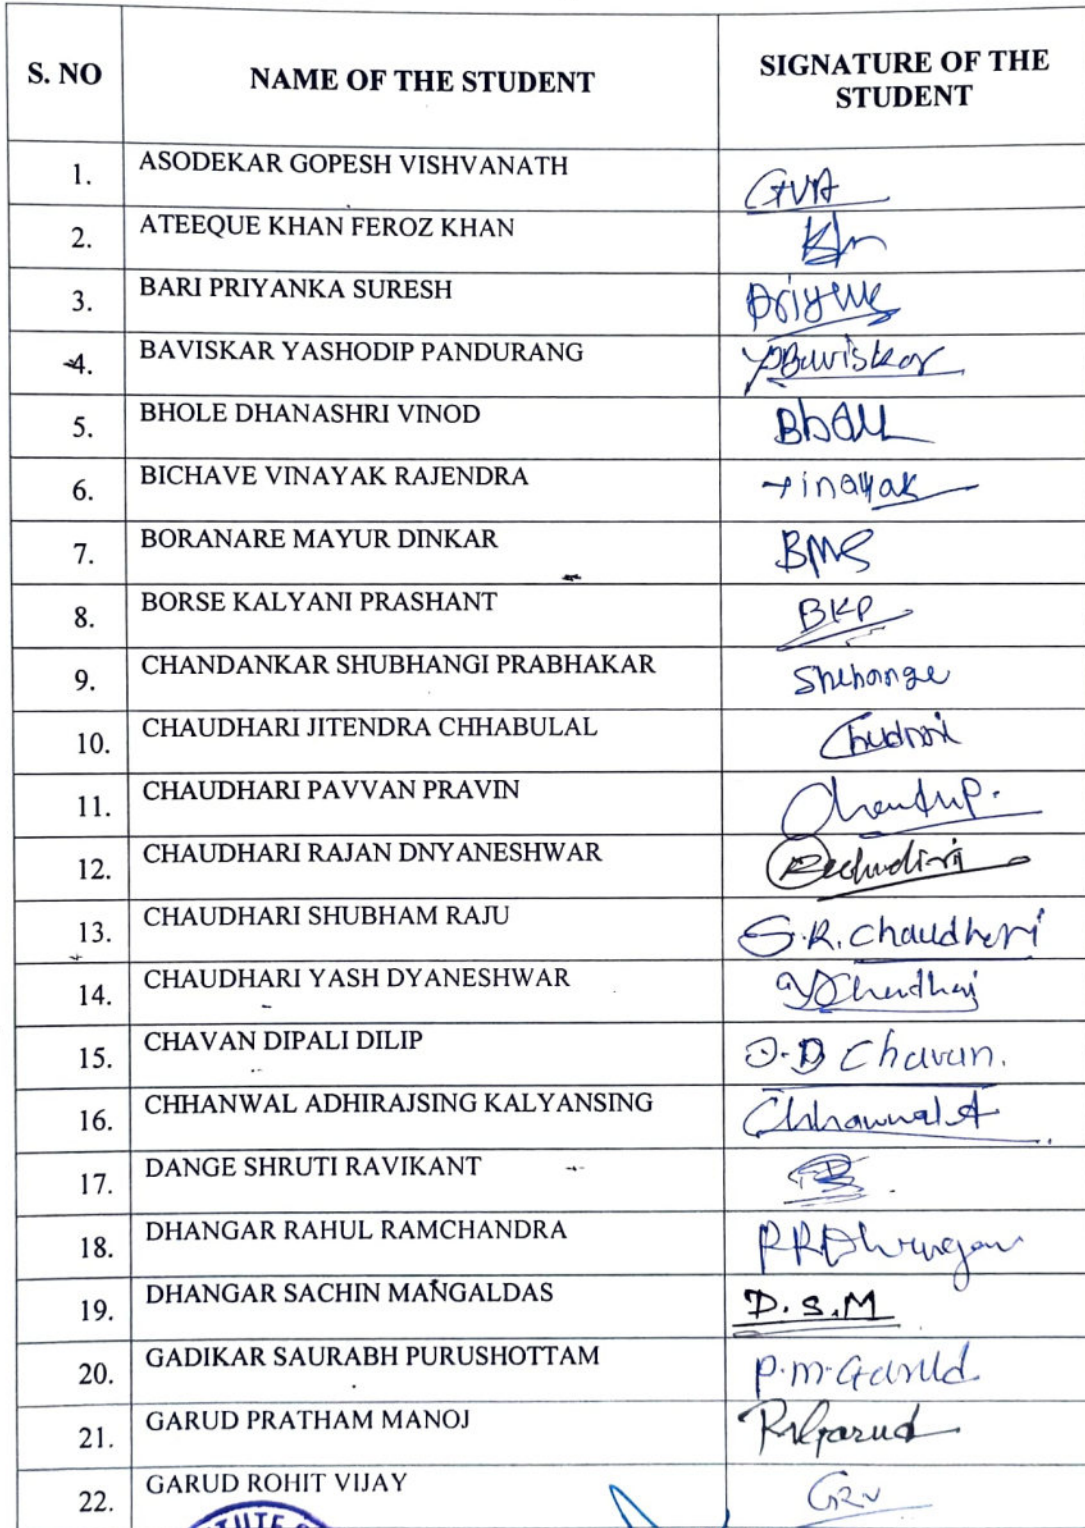 S. NO NAME OF THE STUDENT SIGNATURE OF THE
STUDENT
1. ASODEKAR GOPESH VISHVANATH GVA
2. ATEEQUE KHAN FEROZ KHAN
3. BARI PRIYANKA SURESH
4. BAVISKAR YASHODIP PANDURANG
5. BHOLE DHANASHRI VINOD
6. BICHAVE VINAYAK RAJENDRA Vinayak
7. BORANARE MAYUR DINKAR
8. BORSE KALYANI PRASHANT BKP
9. CHANDANKAR SHUBHANGI PRABHAKAR
10. CHAUDHARI JITENDRA CHHABULAL
11. CHAUDHARI PAVVAN PRAVIN
12. CHAUDHARI RAJAN DNYANESHWAR
13. CHAUDHARI SHUBHAM RAJU S.R. Chaudhari
14. CHAUDHARI YASH DYANESHWAR
15. CHAVAN DIPALI DILIP D.D Chavan.
16. CHHANWAL ADHIRAJSING KALYANSING
17. DANGE SHRUTI RAVIKANT
18. DHANGAR RAHUL RAMCHANDRA
19. DHANGAR SACHIN MANGALDAS D.S.M
20. GADIKAR SAURABH PURUSHOTTAM P.M.Garud
21. GARUD PRATHAM MANOJ
22. GARUD ROHIT VIJAY GRV